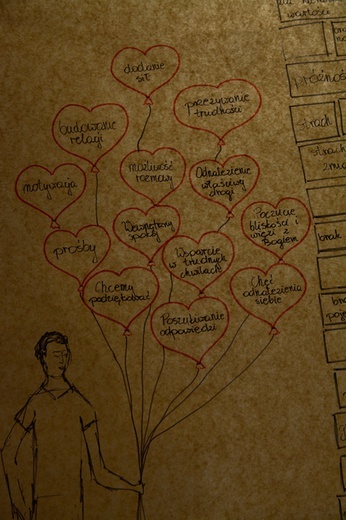 dodanie
sił
przeżywanie
trudności
budowanie
relacji
możliwość
rozmowy
Odnalezienie
właściwej
drogi
motywacja
Wewnętrzny
spokój
Poczucie
bliskości i
więzi z
Bogiem
prośby
Wsparcie
w trudnych
chwilach
Chcemy
podziękować
Chęć
odnalezienia
siebie
Poszukiwanie
odpowiedzi
wartości
strach
strach
brak